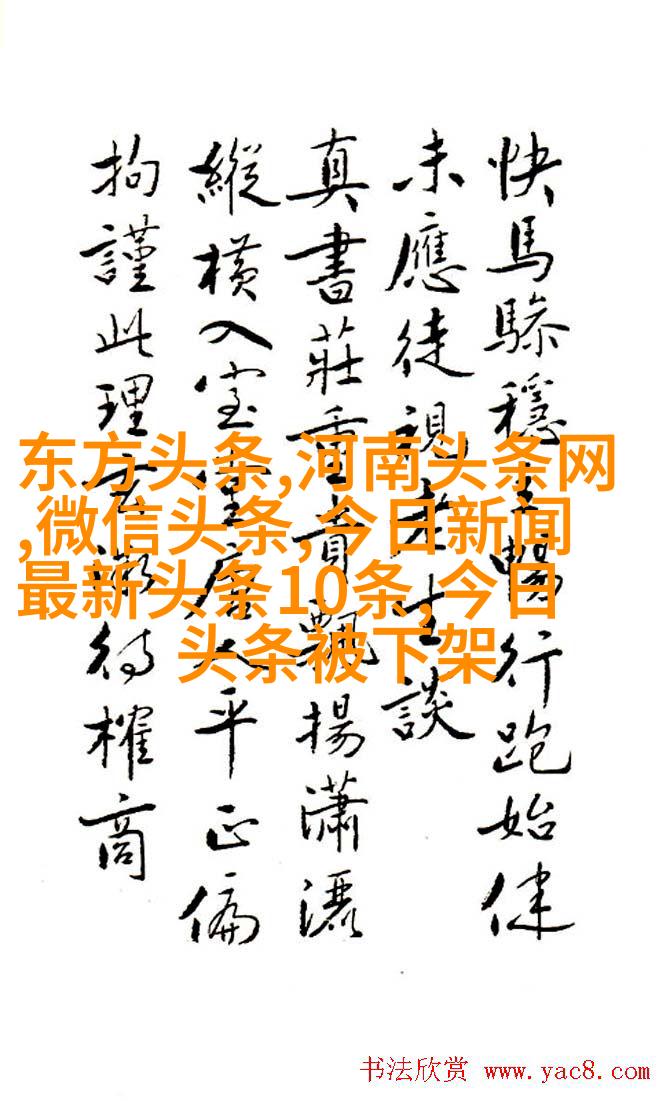 快馬驂穩暢行跑始健
未應徒視老生談
真書莊重貴飄揚瀟灑
縱橫入室平正偏
拘謹此理玄微待榷商
东方头条,河南头条网
,微信头条,今日新闻
最新头条10条,今日
头条被下架
书法欣赏 www.yac8.com